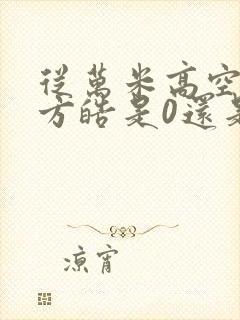 從萬米高空
方皓是0還是
凉宵